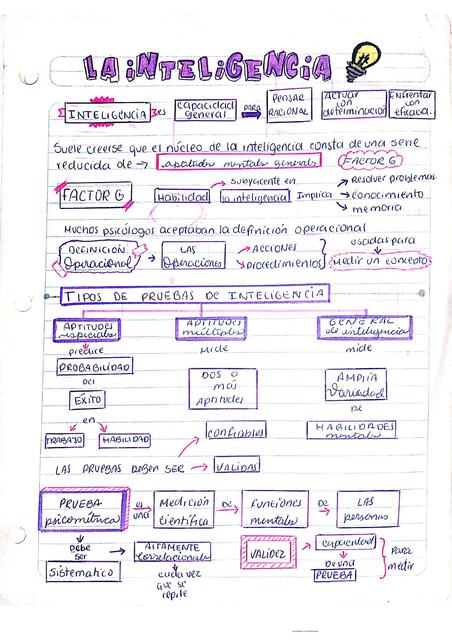 LA INTELIGENCIA
INTELIGENCIA es capacidad general PARA PENSAR RACIONAL ACTUAR con determinación Enfrentar con eficacia.
Suele creerse que el núcleo de la inteligencia consta de una serie
reducida de → aptitudes mentales generales (FACTOR G)
FACTOR G Habilidad Subyacente en la inteligencia Implica → Resolver problemas.
→ conocimiento
→ memoria
Muchos psicólogos aceptaban la definición operacional
DEFINICIÓN Operacional → LAS Operaciones → ACCIONES
→ procedimientos
usadas para
Medir un concepto
TIPOS DE PRUEBAS DE INTELIGENCIA
APTITUDES especiales
predice
PROBABILIDAD
DEL
EXITO
en
TRABAJO HABILIDAD
APTITUDES múltiples
mide
DOS O más Aptitudes
GENERAL de inteligencia
mide
AMPLIA Variedad
DE
HABILIDADES mentales
LAS PRUEBAS DEBEN SER → VALIDAS
confiables
PRUEBA psicométrica es una Medición científica → DE Funciones mentales → DE LAS personas
DEBE SER
Sistematico
ALTAMENTE correlacionada
cada vez que se repite
VALIDEZ → capacidad
De una
PRUEBA
Para medir